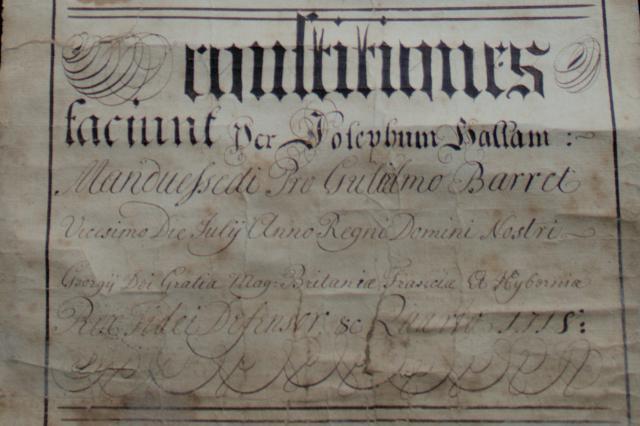 Constitiones
faciunt per Josephum Hallam :
Manduessedi Pro Gulielmo Barret
Vicesimo Die Julij Anno Regni Domini Nostri
Georgij Dei Gratia Mag: Britaniæ Franciæ Et Hyberniæ
Rex Fidei Defensor &c Quarto 1718: